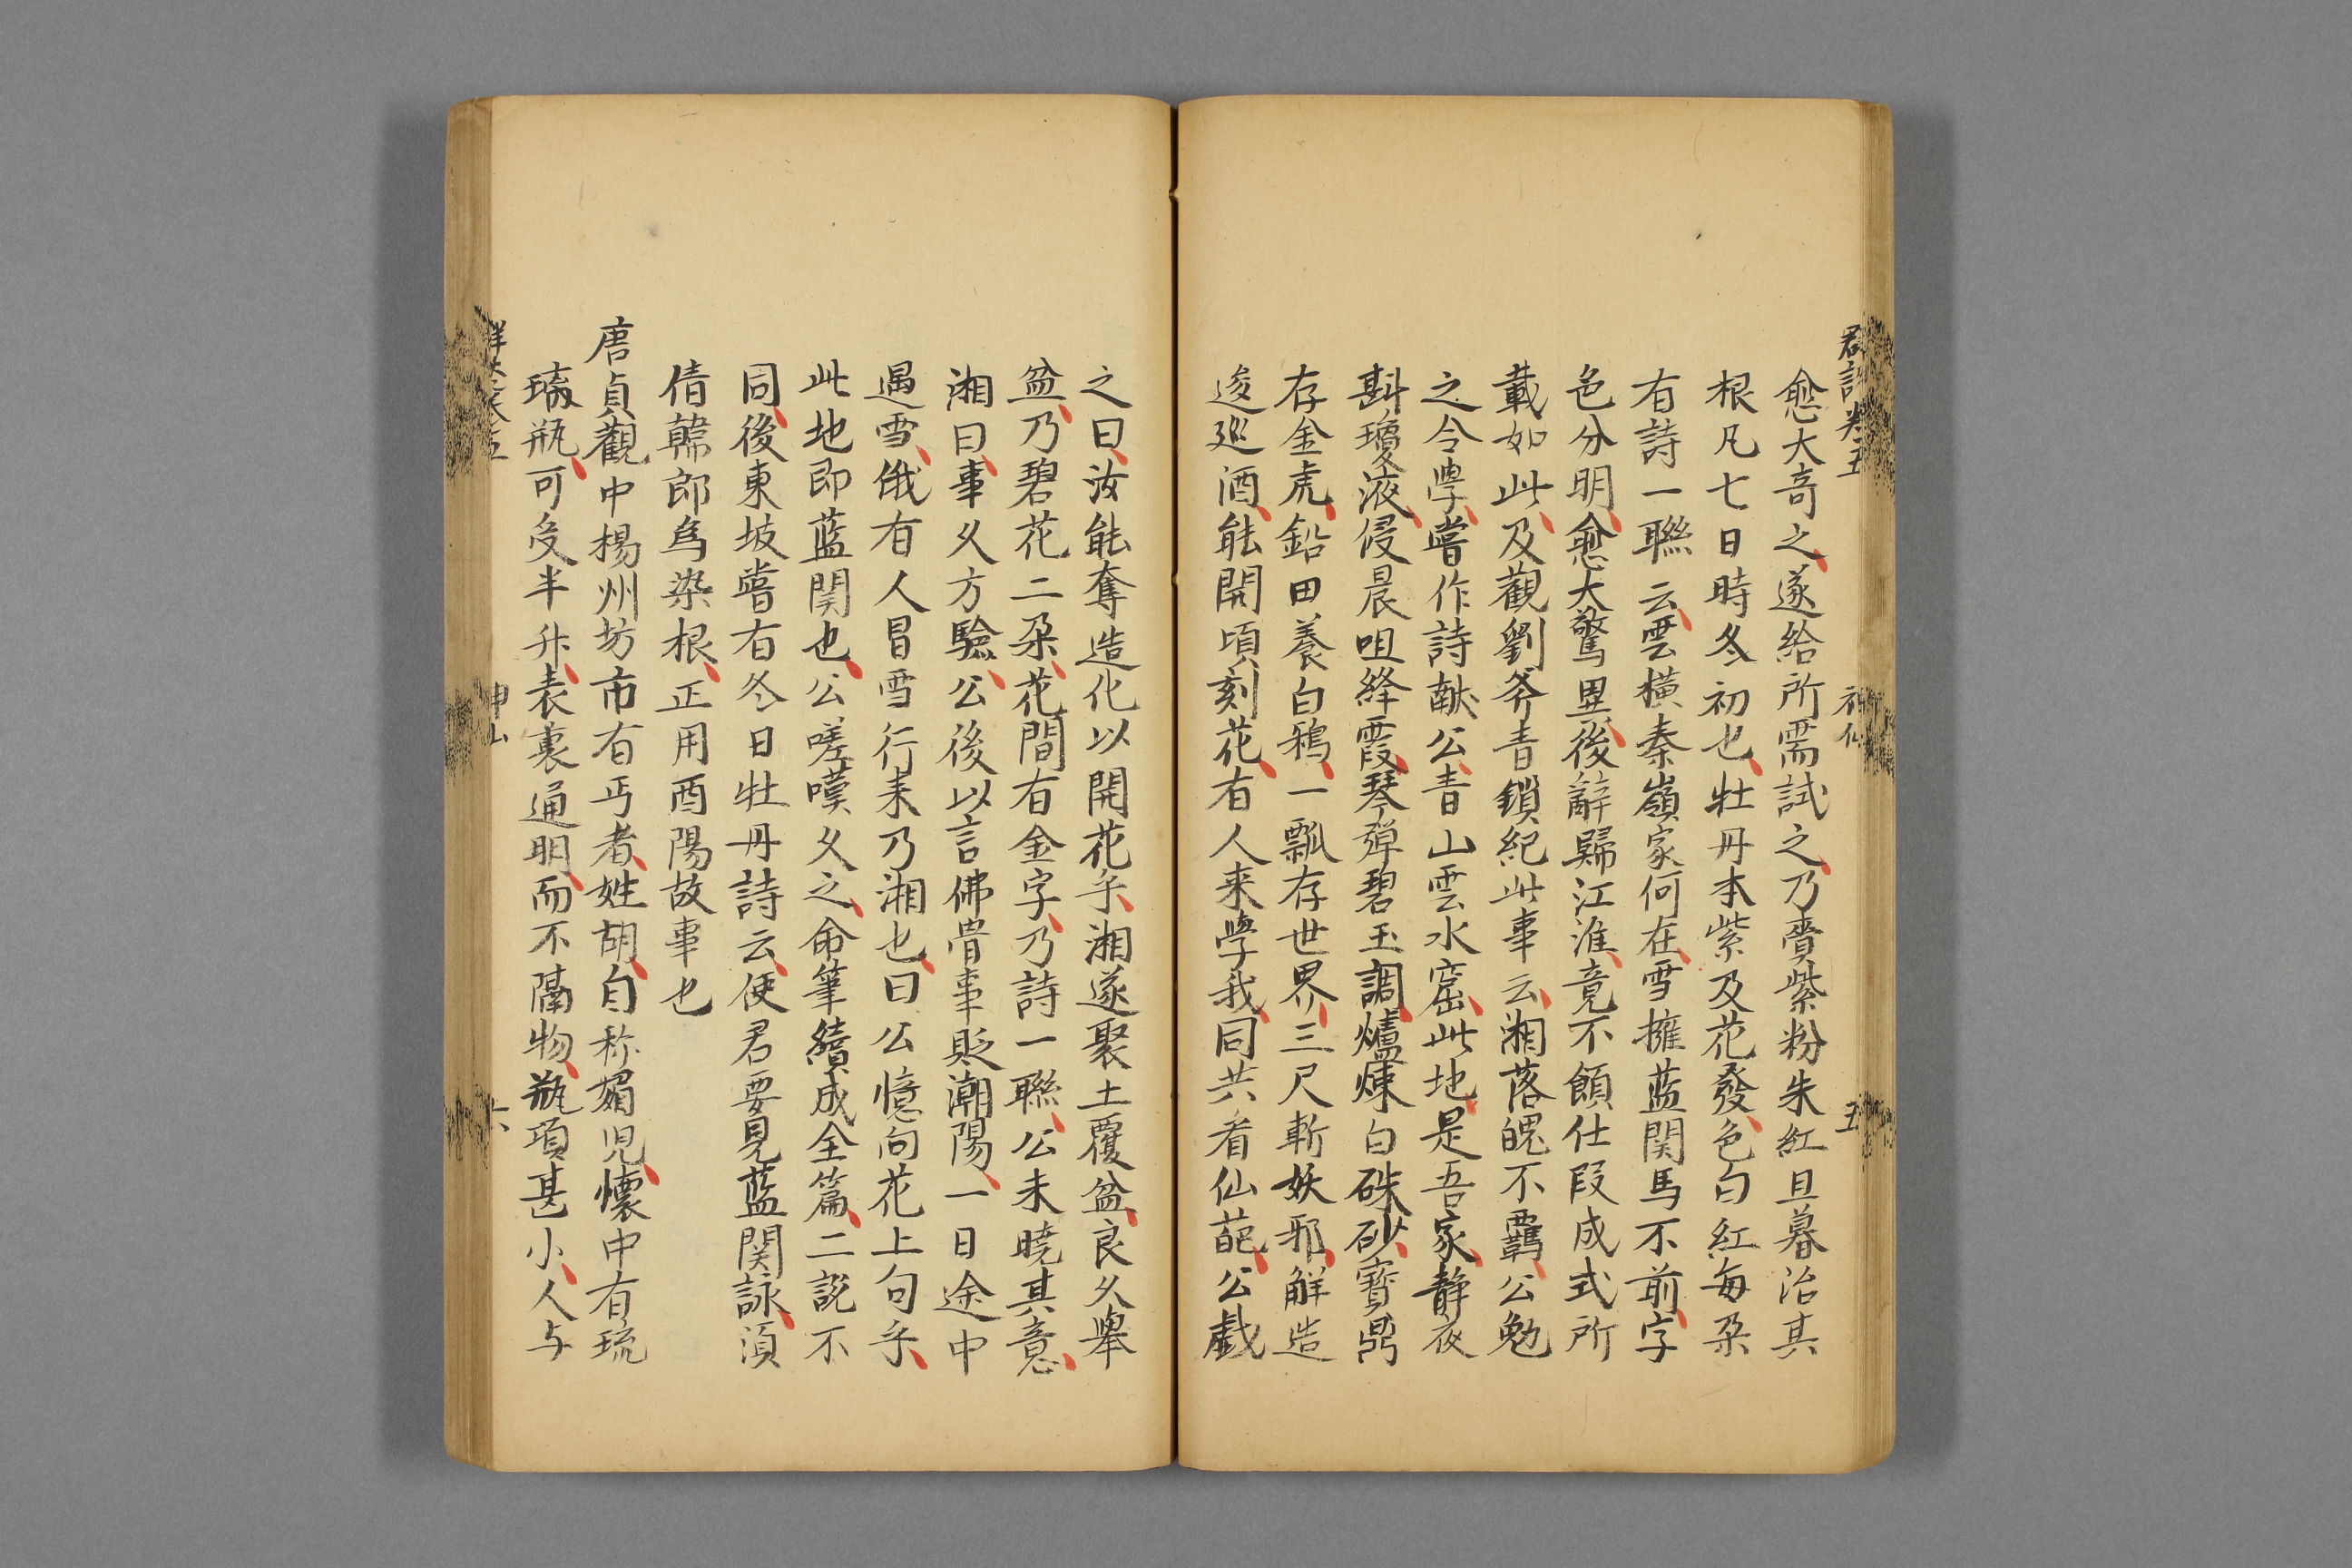 愈大奇之遂給所需試之乃賷紫粉朱紅旦暮治其
根凡七日時冬初也牡丹本紫及花發色白紅每朶
有詩一聯云雲橫秦嶺家何在雪擁蓝関馬不前字
色分明愈大驚異後辭歸江淮竟不願仕段成式所
載如此及觀劉斧青鎖紀此事云湘落魄不羈公勉
之令學嘗作詩献公青山雲水窟此地是吾家静夜
斟瓊液侵晨咀絳霞琴弹碧玉調爐煉白硃砂寳鼎
存金虎鉛田養白鴉一瓢存世界三尺斬妖邪解造
逡巡酒能開頃刻花有人来學我同共看仙葩公戱
之曰汝能奪造化以開花乎湘遂聚土覆盆良久舉
盆乃碧花二朶花間有金字乃詩一聯公未曉其意
湘曰事久方驗公後以言佛骨事貶潮陽一日途中
遇雪俄有人冒雪行来乃湘也曰公憶向花上句乎
此地即蓝関也公嗟嘆久之命筆續成全篇二說不
同後東坡嘗有冬日牡丹詩云使君要見蓝関詠湏
倩韓郎為染根正用酉陽故事也
唐貞觀中楊州坊市有丐者姓胡自称媚児懷中有琉
璃瓶可受半升表裏通明而不隔物瓶項甚小人与